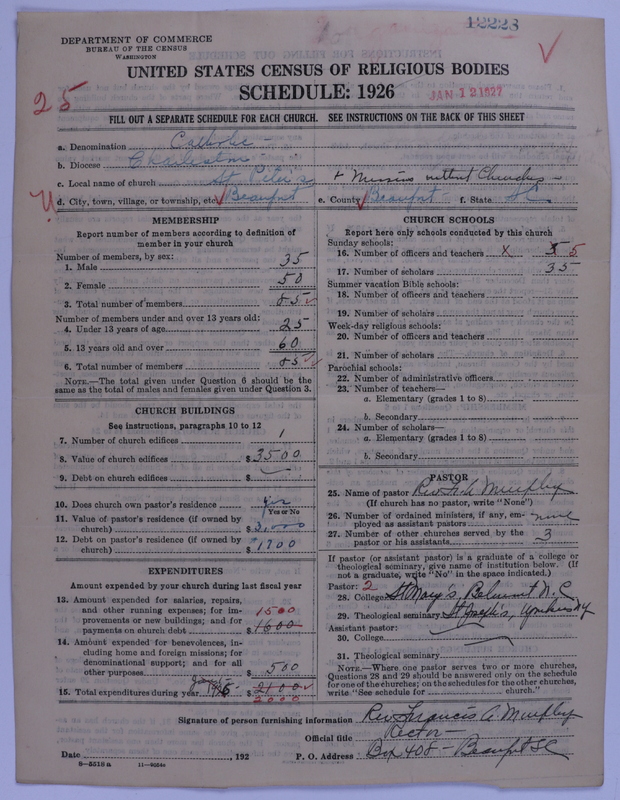 12223
DEPARTMENT OF COMMERCE
BUREAU OF THE CENSUS
WASHINGTON
UNITED STATES CENSUS OF RELIGIOUS BODIES
SCHEDULE: 1926
JAN 12 1927
25
FILL OUT A SEPARATE SCHEDULE FOR EACH CHURCH. SEE INSTRUCTIONS ON THE BACK OF THIS SHEET
a. Denomination Catholic
b. Diocese Charleston
c. Local name of church St Peter's + Missions without Churches
d. City, town, village, or township, etc Beaufort e. County Beaufort f. State SC
MEMBERSHIP
Report number of members according to definition of
member in your church
Number of members, by sex:
1. Male 35
2. Female 50
3. Total number of members 85
Number of members under and over 13 years old:
4. Under 13 years of age 25
5. 13 years old and over 60
6. Total number of members 85
NOTE.—The total given under Question 6 should be the
same as the total of males and females given under Question 3.
CHURCH BUILDINGS
See instructions, paragraphs 10 to 12
7. Number of church edifices 1
8. Value of church edifices $ 3500
9. Debt on church edifices $
10. Does church own pastor's residence yes
Yes or No
11. Value of pastor's residence (if owned by
church) $ 3,000
12. Debt on pastor's residence (if owned by
church) $ 1700
EXPENDITURES
Amount expended by your church during last fiscal year
13. Amount expended for salaries, repairs,
and other running expenses; for im-
provements or new buildings; and for
payments on church debt $ 1600 1500
14. Amount expended for benevolences, in-
cluding home and foreign missions; for
denominational support; and for all
other purposes $ 500
15. Total expenditures during year $ 2100
2000
CHURCH SCHOOLS
Report here only schools conducted by this church
Sunday schools:
16. Number of officers and teachers x 5 5
17. Number of scholars 35
Summer vacation Bible schools:
18. Number of officers and teachers
19. Number of scholars
Week-day religious schools:
20. Number of officers and teachers
21. Number of scholars
Parochial schools:
22. Number of administrative officers
23. Number of teachers—
a. Elementary (grades 1 to 8)
b. Secondary
24. Number of scholars—
a. Elementary (grades 1 to 8)
b. Secondary
PASTOR
25. Name of pastor Rev F. A. Murphy
(If church has no pastor, write "None")
26. Number of ordained ministers, if any, em-
ployed as assistant pastors none
27. Number of other churches served by the
pastor or his assistants 3
If pastor (or assistant pastor) is a graduate of a college or
theological seminary, give name of institution below. (If
not a graduate, write "No" in the space indicated.)
Pastor: 2
28. College St Mary's, Belmont N. C
29. Theological seminary St Joseph's, Yonkers NY
Assistant pastor:
30. College
31. Theological seminary
NOTE.—Where one pastor serves two or more churches,
Questions 28 and 29 should be answered only on the schedule
for one of the churches; on the schedules for the other churches,
write "See schedule for church."
Signature of person furnishing information Rev Francis A. Murphy
Official title Rector
Date , 192 P. O. Address Box 408 - Beaufort SC
8—5518 a 11—9054a